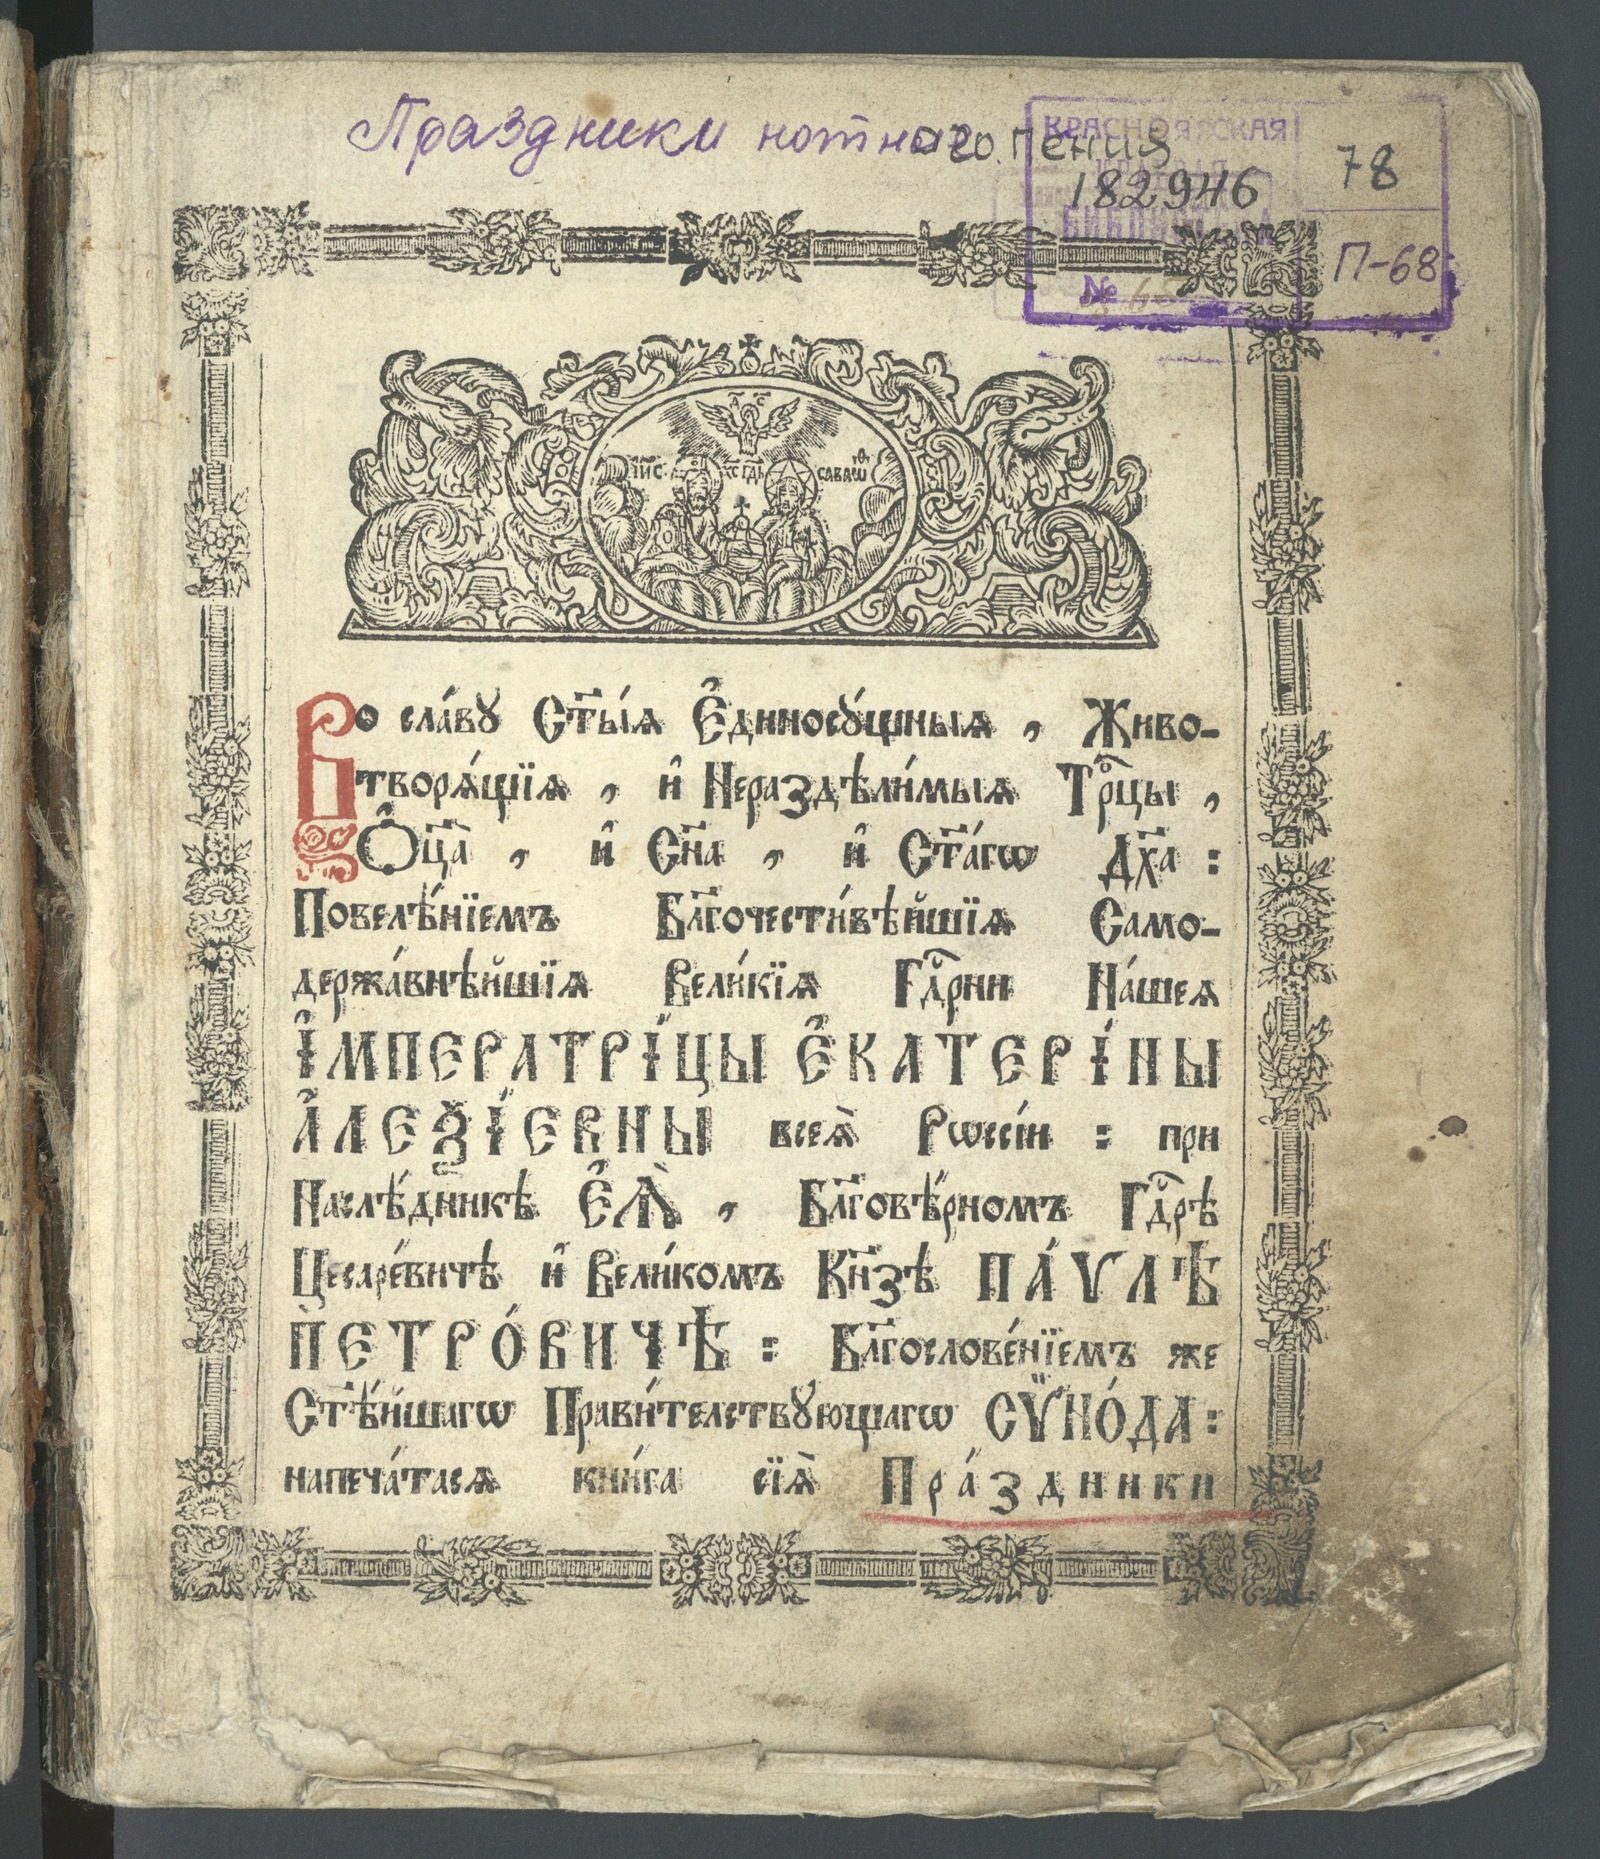 Праздники нотного пения
КРАСНОЯРСКАЯ
182946
78
БИБЛИОТЕКА
П-68
№
ІИ҃С ХС ГДЬ САВАѠѲ
Во сла́вꙋ Ст҃ы́ѧ Є҆диносꙋ́щныѧ , Живо-
творѧ́щїѧ , и҆ Нераздѣли́мыѧ Трⷪ҇цы ,
Ѻ҆ц҃а̀ , и҆ Сн҃а , и҆ Ст҃а́гѡ Дх҃а :
Повелѣ́нїемъ Бл҃гочести́вѣйшїѧ Само-
держа́внѣйшїѧ Вели́кїѧ Гдⷭ҇рни На́шеѧ
І҆МПЕРАТРІ́ЦЫ Є҆КАТЕРІ́НЫ
А҆ЛЕѮІ́ЕВНЫ всеѧ̀ Рѡссі́и : при
Наслѣ́дникѣ Є҆Ѧ̀ , Бл҃говѣ́рномъ Гдⷭ҇рѣ
Цесаре́вичѣ и҆ Вели́комъ Кн҃зѣ ПА́ѴЛѢ
ПЕТРО́ВИЧѢ : Бл҃гослове́нїемъ же
Ст҃ѣ́йшагѡ Прави́телствꙋющагѡ СѴ̈НО́ДА :
напеча́тасѧ кни́га сїѧ̀ Пра́здники